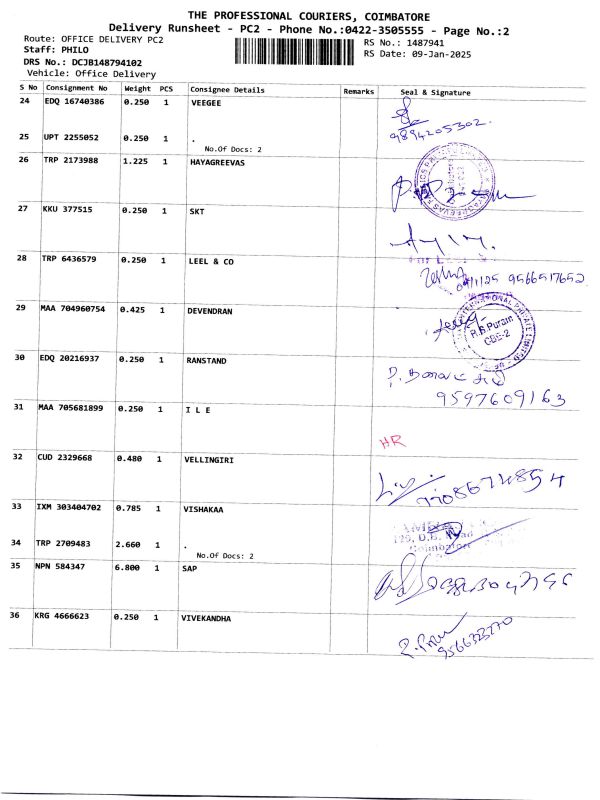 THE PROFESSIONAL COURIERS, COIMBATORE
Delivery Runsheet - PC2 - Phone No.:0422-3505555 - Page No.:2
Route: OFFICE DELIVERY PC2
RS No.: 1487941
Staff: PHILO
RS Date: 09-Jan-2025
DRS No.: DCJB148794102
Vehicle: Office Delivery
S No Consignment No Weight PCS Consignee Details Remarks Seal & Signature
24 EDQ 16740386 0.250 1 VEEGEE
9894205302.
25 UPT 2255052 0.250 1 .
No.Of Docs: 2
26 TRP 2173988 1.225 1 HAYAGREEVAS
27 KKU 377515 0.250 1 SKT
28 TRP 6436579 0.250 1 LEEL & CO
09/1/25 9566517652
29 MAA 704960754 0.425 1 DEVENDRAN
R.S.Puram
CBE-2
30 EDQ 20216937 0.250 1 RANSTAND
9597609163
31 MAA 705681899 0.250 1 I L E
HR
32 CUD 2329668 0.480 1 VELLINGIRI
33 IXM 303404702 0.785 1 VISHAKAA
34 TRP 2709483 2.660 1 .
Coimbatore
No.Of Docs: 2
35 NPN 584347 6.800 1 SAP
36 KRG 4666623 0.250 1 VIVEKANDHA